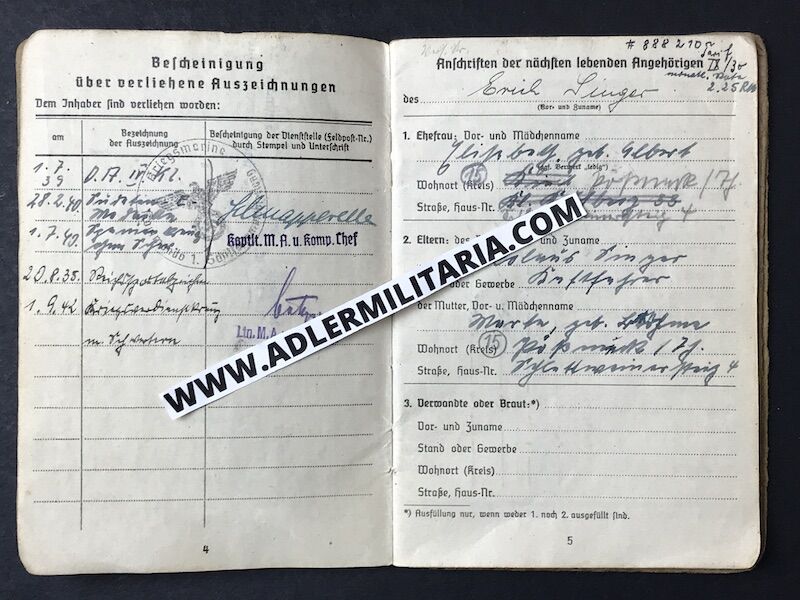 Bescheinigung
über verliehene Auszeichnungen
Dem Inhaber sind verliehen worden:
am
Bezeichnung
der Auszeichnung
Bescheinigung der Dienststelle (Feldpost-Nr.)
durch Stempel und Unterschrift
1.7.
39
D.A. IV Kl.
28.2.40
1.7.40
Kaptlt. M.A. u. Komp. Chef
20.8.38
Reichssportabzeichen
1.9.42 Kriegsverdienstkreuz
m. Schwertern
Ltn. M.A.
Kriegsmarine
4
# 888 210
Anschriften der nächsten lebenden Angehörigen
2.25 RM
des Erich Singer
(Vor- und Zuname)
1. Ehefrau: Vor- und Mädchenname
Elisabeth, geb. Elbert
(ggf. Vermerk „ledig“)
Wohnort (Kreis) (15) Pößneck / Th.
Straße, Haus-Nr.
2. Eltern: des und Zuname
Singer
oder Gewerbe Kraftfahrer
der Mutter, Vor- u. Mädchenname
geb. Böhme
Wohnort (Kreis) (15) Pößneck / Th.
Straße, Haus-Nr. Schlettweinersteig 4
3. Verwandte oder Braut:*)
Vor- und Zuname
Stand oder Gewerbe
Wohnort (Kreis)
Straße, Haus-Nr.
*) Ausfüllung nur, wenn weder 1. noch 2. ausgefüllt sind.
5
WWW.ADLERMILITARIA.COM